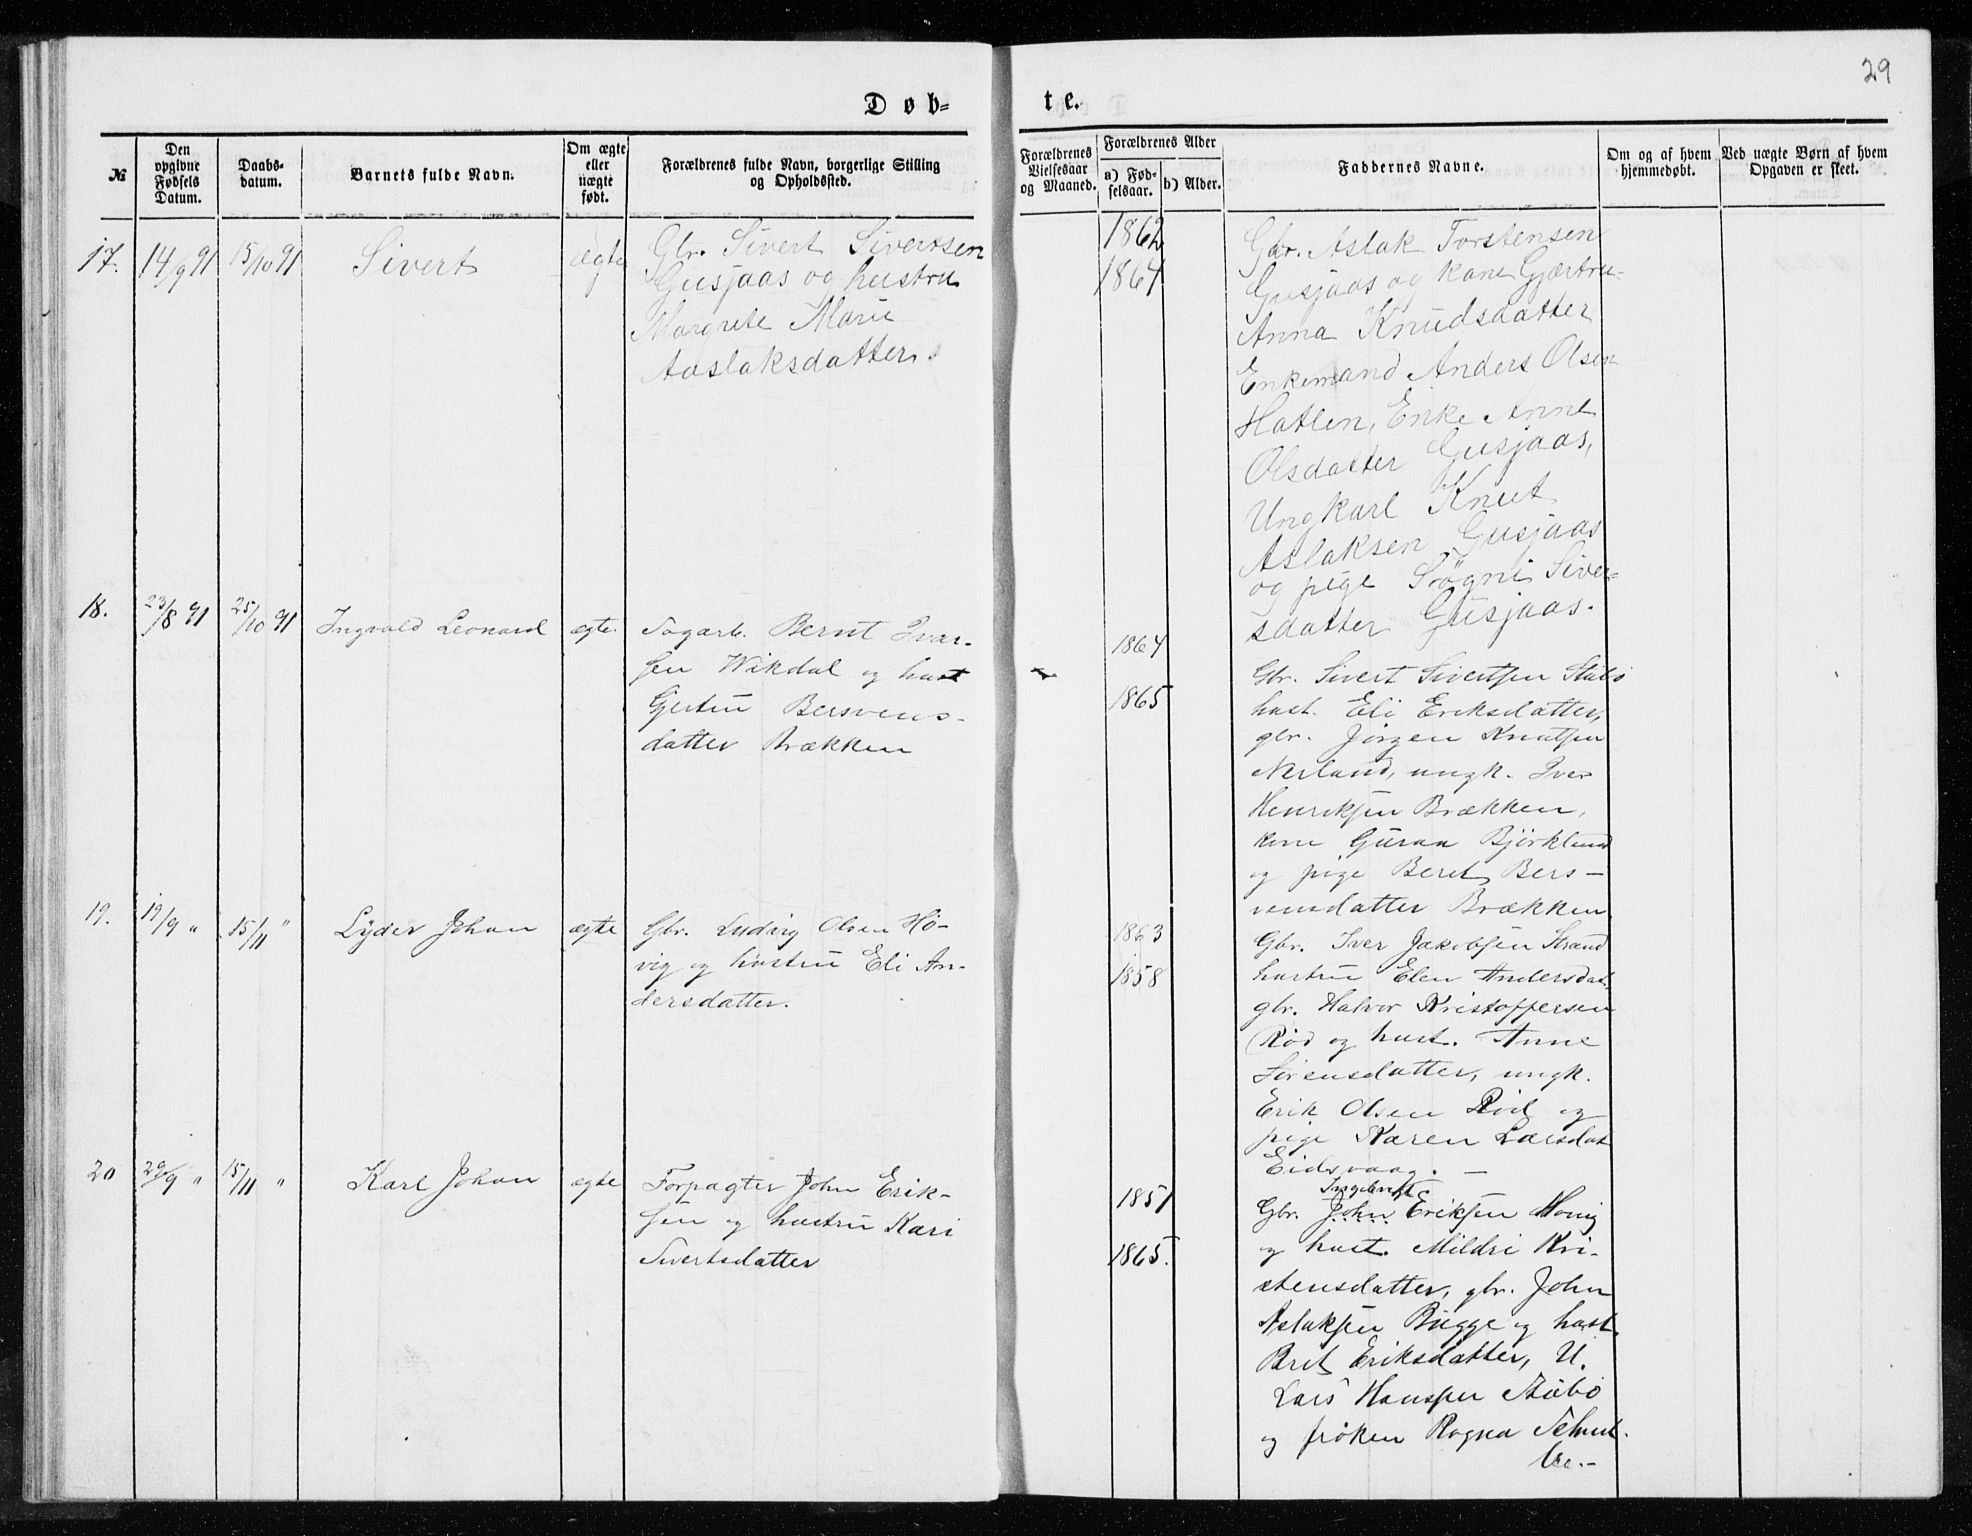 29
Døb=
te.
№
Den opgivne Fødsels Datum.
Daabs-datum.
Barnets fulde Navn.
Om ægte eller uægte født.
Forældrenes fulde Navn, borgerlige Stilling og Opholdssted.
Forældrenes Vielsesaar og Maaned.
Forældrenes Alder
a) Fød-selsaar.
b) Alder.
Faddernes Navne.
Om og af hvem hjemmedøbt.
Ved uægte Børn af hvem Opgaven er skeet.
17. 14/9 91 15/10 91 Sivert ægte
Gbr. Sivert Sivertsen
Gusjaas og hustru
Margrete Marie
Aaslaksdatter.
1862
1864
Gbr. Aslak Torstensen
Gusjaas og kone Gjærtru-
Anna Knudsdatter
Enkemand Anders Olsen
Hatlen, Enke Anne
Olsdatter Gusjaas,
Ungkarl Knut
Aslaksen Gusjaas
og pige Sögni Siver-
sdatter Gusjaas.
18. 23/8 91 25/10 91 Ingvald Leonard ægte
Sagarb. Bernt Ivar-
sen Wikdal og hust
Gjertru Bersvens-
datter Brækken
1864
1865
Gbr. Sivert Sivertsen Stubø
hust. Eli Eriksdatter,
gbr. Jörgen Knutsen
Nerland, ungk. Iver
Henriksen Brækken,
kone Guraa Björklund
og pige Beret Bers-
vensdatter Brækken
19. 19/9 " 15/11 " Lyder Johan ægte
Gbr. Ludvig Olsen Hö-
vig og hustru Eli An-
dersdatter.
1863
1858
Gbr. Iver Jakobsen Strand
hustru Elen Andersdat.
gbr. Halvor Kristoffersen
Röd og hust. Anne
Sörensdatter, ungk.
Erik Olsen Röd og
pige Karen Larsdat
Eidsvaag. -
20 29/9 " 15/11 " Karl Johan ægte
Forpagter John Erik-
sen og hustru Kari
Sivertsdatter
1851
1865.
Ingebrigt
Gbr. John Eriksen
og hust. Mildri Kri-
stensdatter, gbr. John
Aslaksen Bugge og hust.
Bret Eriksdatter, U.
Lars Hansen Stubö
og fröken Ragna